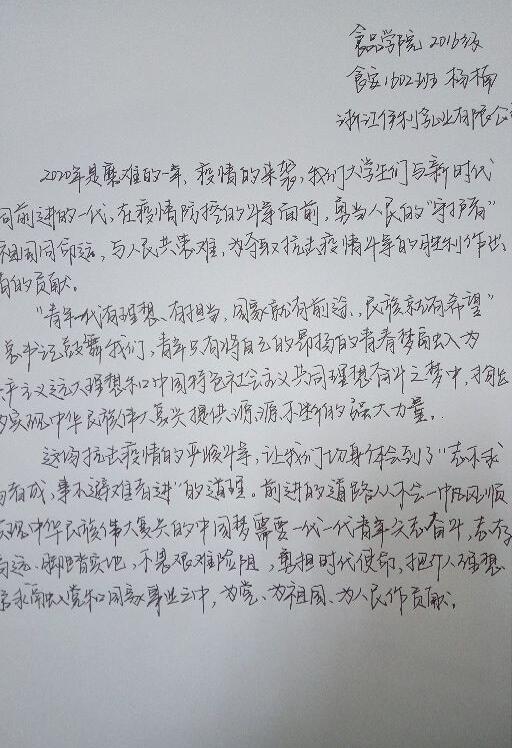 食品学院 2016级
食安1602班 杨楠
浙江伊利乳业有限公
2020年是磨难的一年,疫情的来袭,我们大学生们与新时代
同前进的一代,在疫情防控的斗争面前,勇当人民的“守护者”
祖国同命运,与人民共患难,为夺取抗击疫情斗争的胜利作出
有的贡献。
“青年一代有理想、有担当,国家就有前途,民族就有希望”
总书记鼓舞我们,青年只有将自己的昂扬的青春梦融入为
产主义远大理想和中国特色社会主义共同理想奋斗之梦中,
实现中华民族伟大复兴提供源源不断的强大力量。
这场抗击疫情的严峻斗争,让我们切身体会到了“志不求
易者成,事不避难者进”的道理。前进的道路从不会一帆风顺
实现中华民族伟大复兴的中国梦需要一代一代青年矢志奋斗,志存
高远、脚踏实地,不畏艰难险阻,勇担时代使命,把个人理想
追求融入党和国家事业之中,为党、为祖国、为人民作贡献。